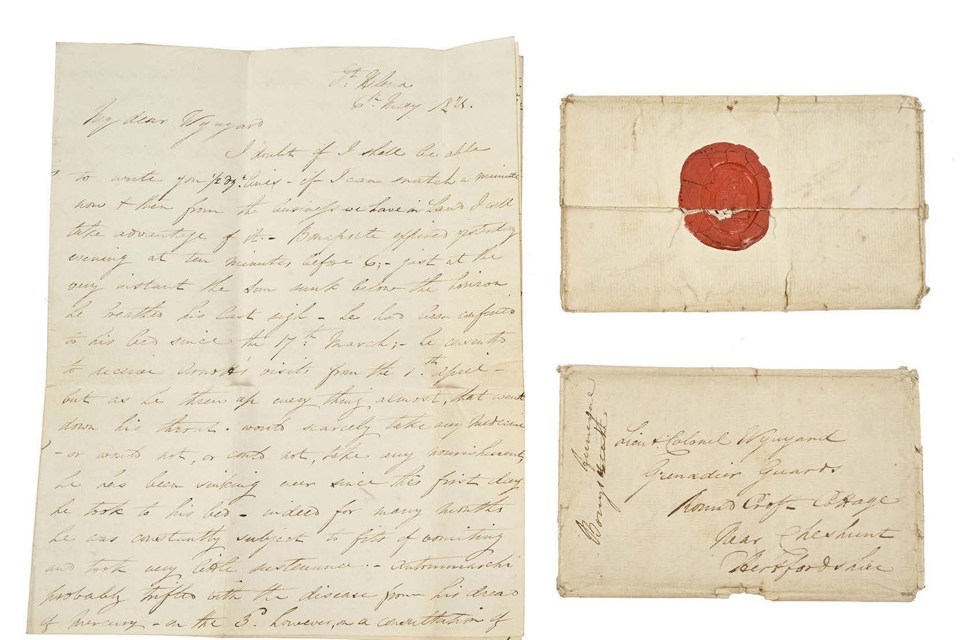 St. Helena
6th May 1821.
My dear Wynyard
I doubt if I shall be able
to write you 1/2 dzn. lines - if I can snatch a minute
now & then from the business we have in hand I will
take advantage of it. - Bonaparte expired yesterday
evening at ten minutes before 6, - just at the
very instant the Sun sunk below the horizon
he breathed his last sigh - he had been confined
to his bed since the 17th. March; - he consented
to receive Arnott's visits from the 1st. April -
but as he threw up every thing almost, that went
down his throat - would scarcely take any medicine
- or would not, or could not, take any nourishment,
he has been sinking ever since the first day
he took to his bed - indeed for many months
he was constantly subject to fits of vomiting
and took very little sustenance. - Autommarchi
probably trifled with the disease from his dread
of mercury - on the 3d. however, on a consultation of
Bonys death
Lieut Colonel Wynyard
Grenadier Guards
Round Croft Cottage
Near Cheshunt
Hertfordshire